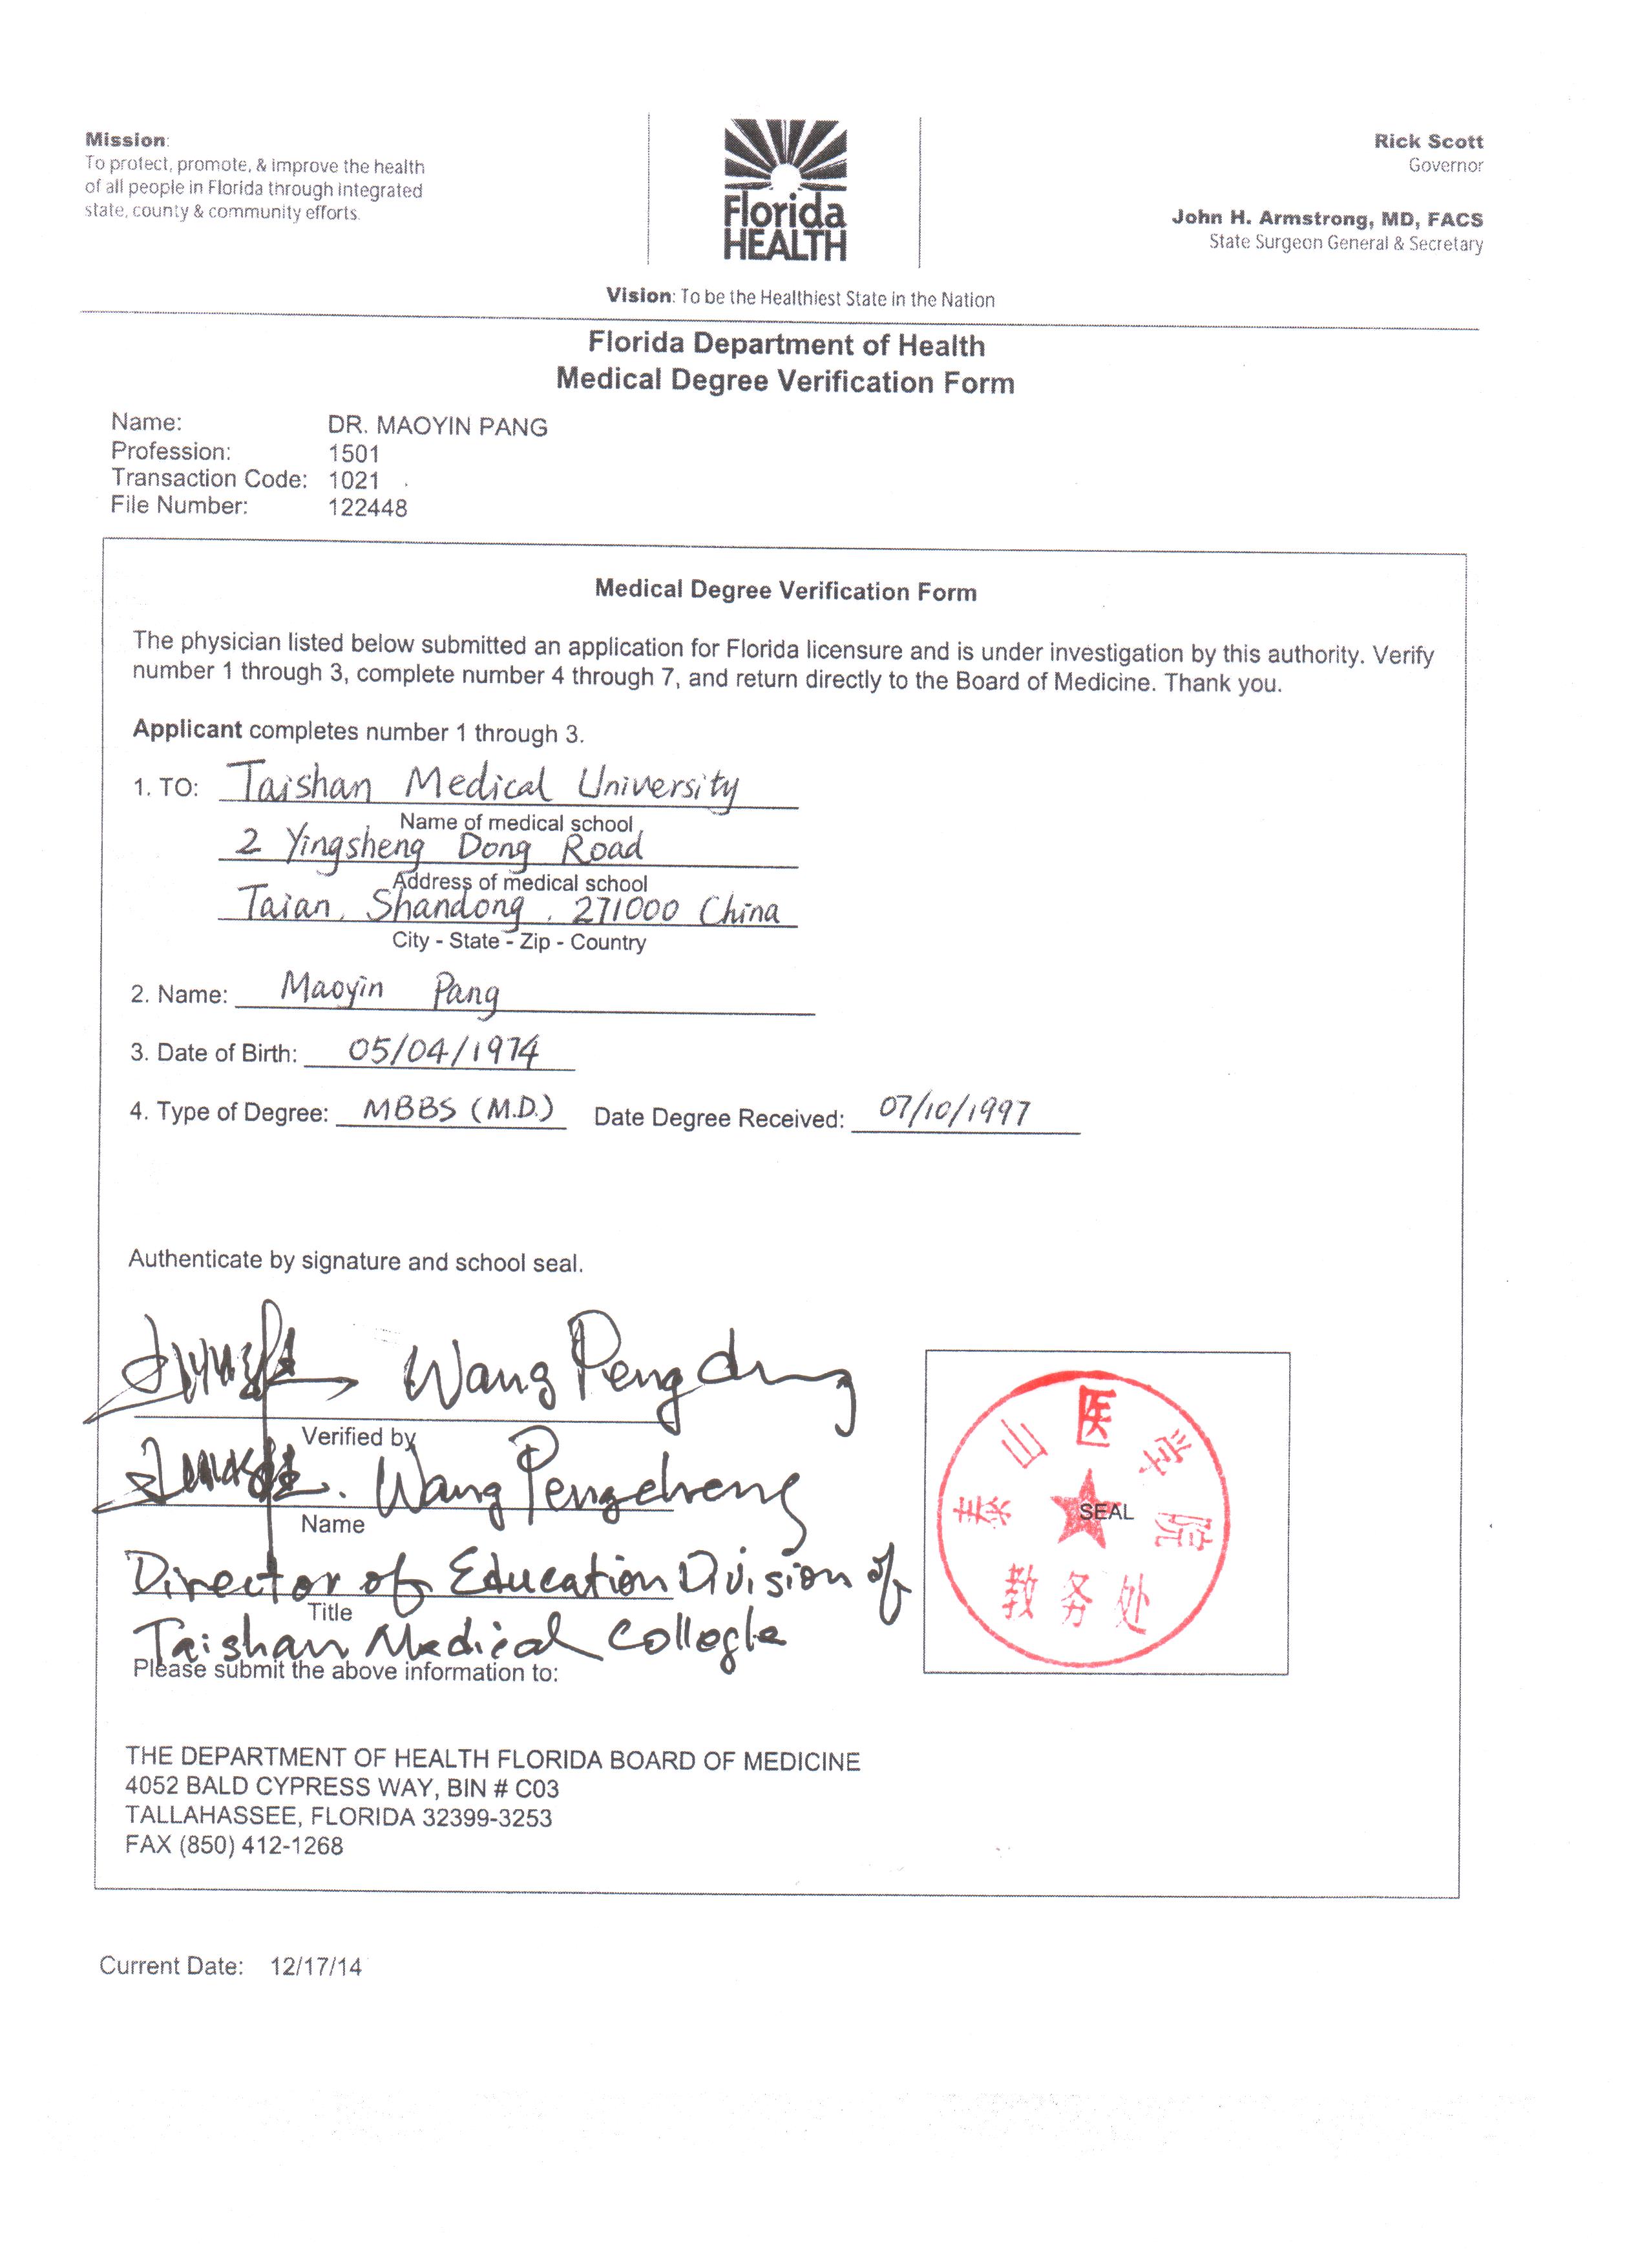 Mission:
To protect, promote, & improve the health
of all people in Florida through integrated
state, county & community efforts.
Florida
HEALTH
Rick Scott
Governor
John H. Armstrong, MD, FACS
State Surgeon General & Secretary
Vision: To be the Healthiest State in the Nation
Florida Department of Health
Medical Degree Verification Form
Name: DR. MAOYIN PANG
Profession: 1501
Transaction Code: 1021
File Number: 122448
Medical Degree Verification Form
The physician listed below submitted an application for Florida licensure and is under investigation by this authority. Verify
number 1 through 3, complete number 4 through 7, and return directly to the Board of Medicine. Thank you.
Applicant completes number 1 through 3.
1. TO: Taishan Medical University
Name of medical school
2 Yingsheng Dong Road
Address of medical school
Taian, Shandong, 271000 China
City - State - Zip - Country
2. Name: Maoyin Pang
3. Date of Birth: 05/04/1974
4. Type of Degree: MBBS (M.D.) Date Degree Received: 07/10/1997
Authenticate by signature and school seal.
Wang
Verified by
Wang Pengcheng
Name
Director of Education Division of
Title
Taishan Medical
Please submit the above information to:
泰山医学院
SEAL
教务处
THE DEPARTMENT OF HEALTH FLORIDA BOARD OF MEDICINE
4052 BALD CYPRESS WAY, BIN # C03
TALLAHASSEE, FLORIDA 32399-3253
FAX (850) 412-1268
Current Date: 12/17/14